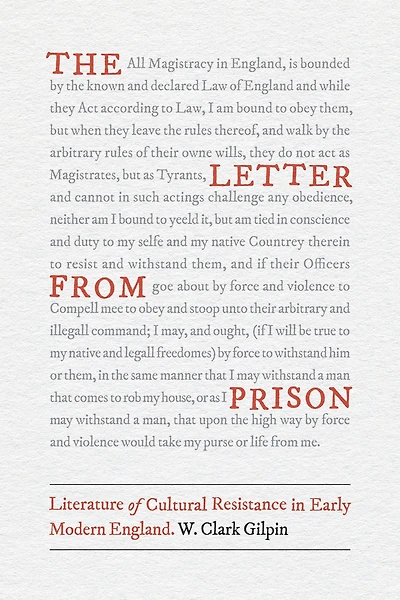 THE All Magistracy in England, is bounded
by the known and declared Law of England and while
they Act according to Law, I am bound to obey them,
but when they leave the rules thereof, and walk by the
arbitrary rules of their owne wills, they do not act as
Magistrates, but as Tyrants, LETTER
and cannot in such actings challenge any obedience,
neither am I bound to yeeld it, but am tied in conscience
and duty to my selfe and my native Countrey therein
to resist and withstand them, and if their Officers
FROM goe about by force and violence to
Compell mee to obey and stoop unto their arbitrary and
illegall command; I may, and ought, (if I will be true to
my native and legall freedomes) by force to withstand him
or them, in the same manner that I may withstand a man
that comes to rob my house, or as I PRISON
may withstand a man, that upon the high way by force
and violence would take my purse or life from me.
Literature of Cultural Resistance in Early
Modern England. W. Clark Gilpin